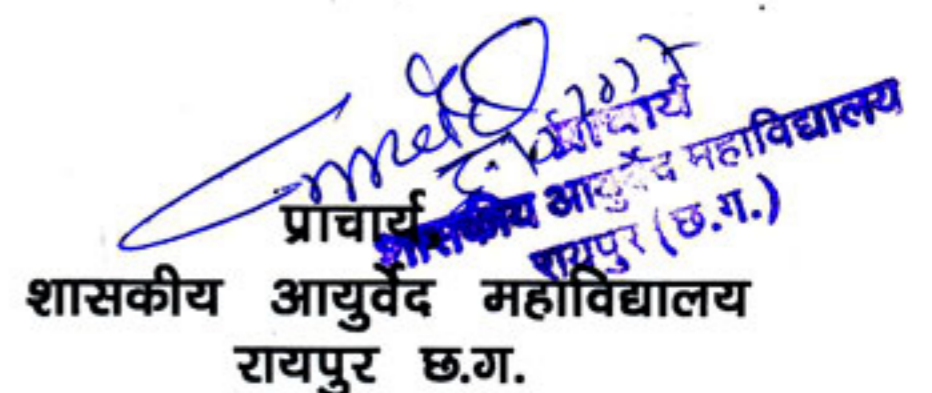 प्राचार्य
शासकीय आयुर्वेद महाविद्यालय
रायपुर (छ.ग.)
प्राचार्य
शासकीय आयुर्वेद महाविद्यालय
रायपुर छ.ग.